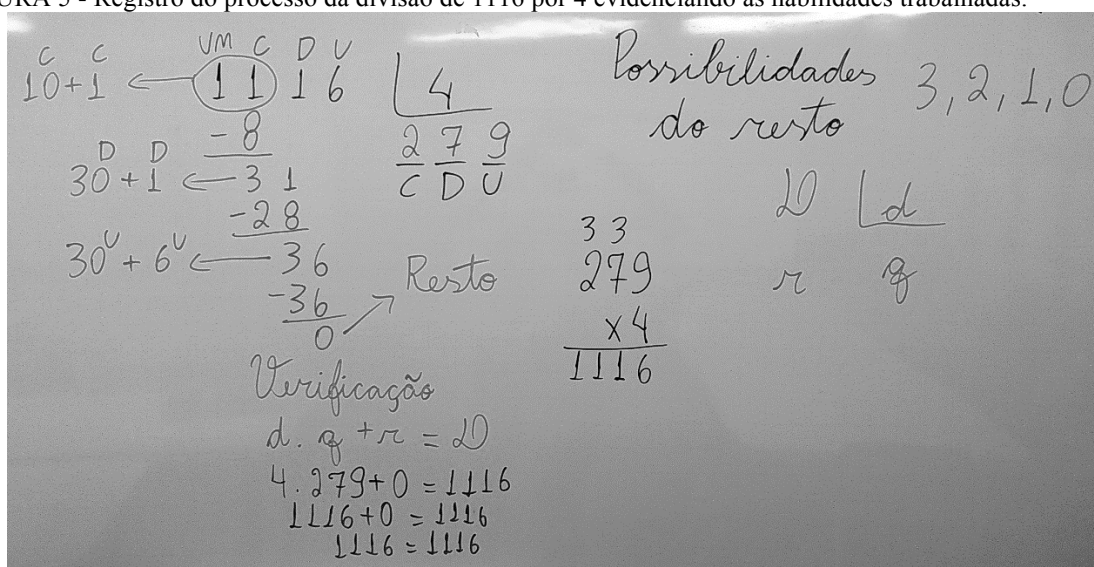 URA 5 - Registro do processo da divisão de 1116 por 4 evidenciando as habilidades trabalhadas.
C C UM C D U
10+1 ← 11 1 6 4
- 8 2 7 9
D D C D U
30+1 ← 3 1
-28
30U + 6U ← 36
-36
0 → Resto
Verificação
d. q + r = D
4. 279+0 = 1116
1116+0 = 1116
1116 = 1116
Possibilidades 3, 2, 1, 0
do resto
3 3
279
x4
1116
D d
r q